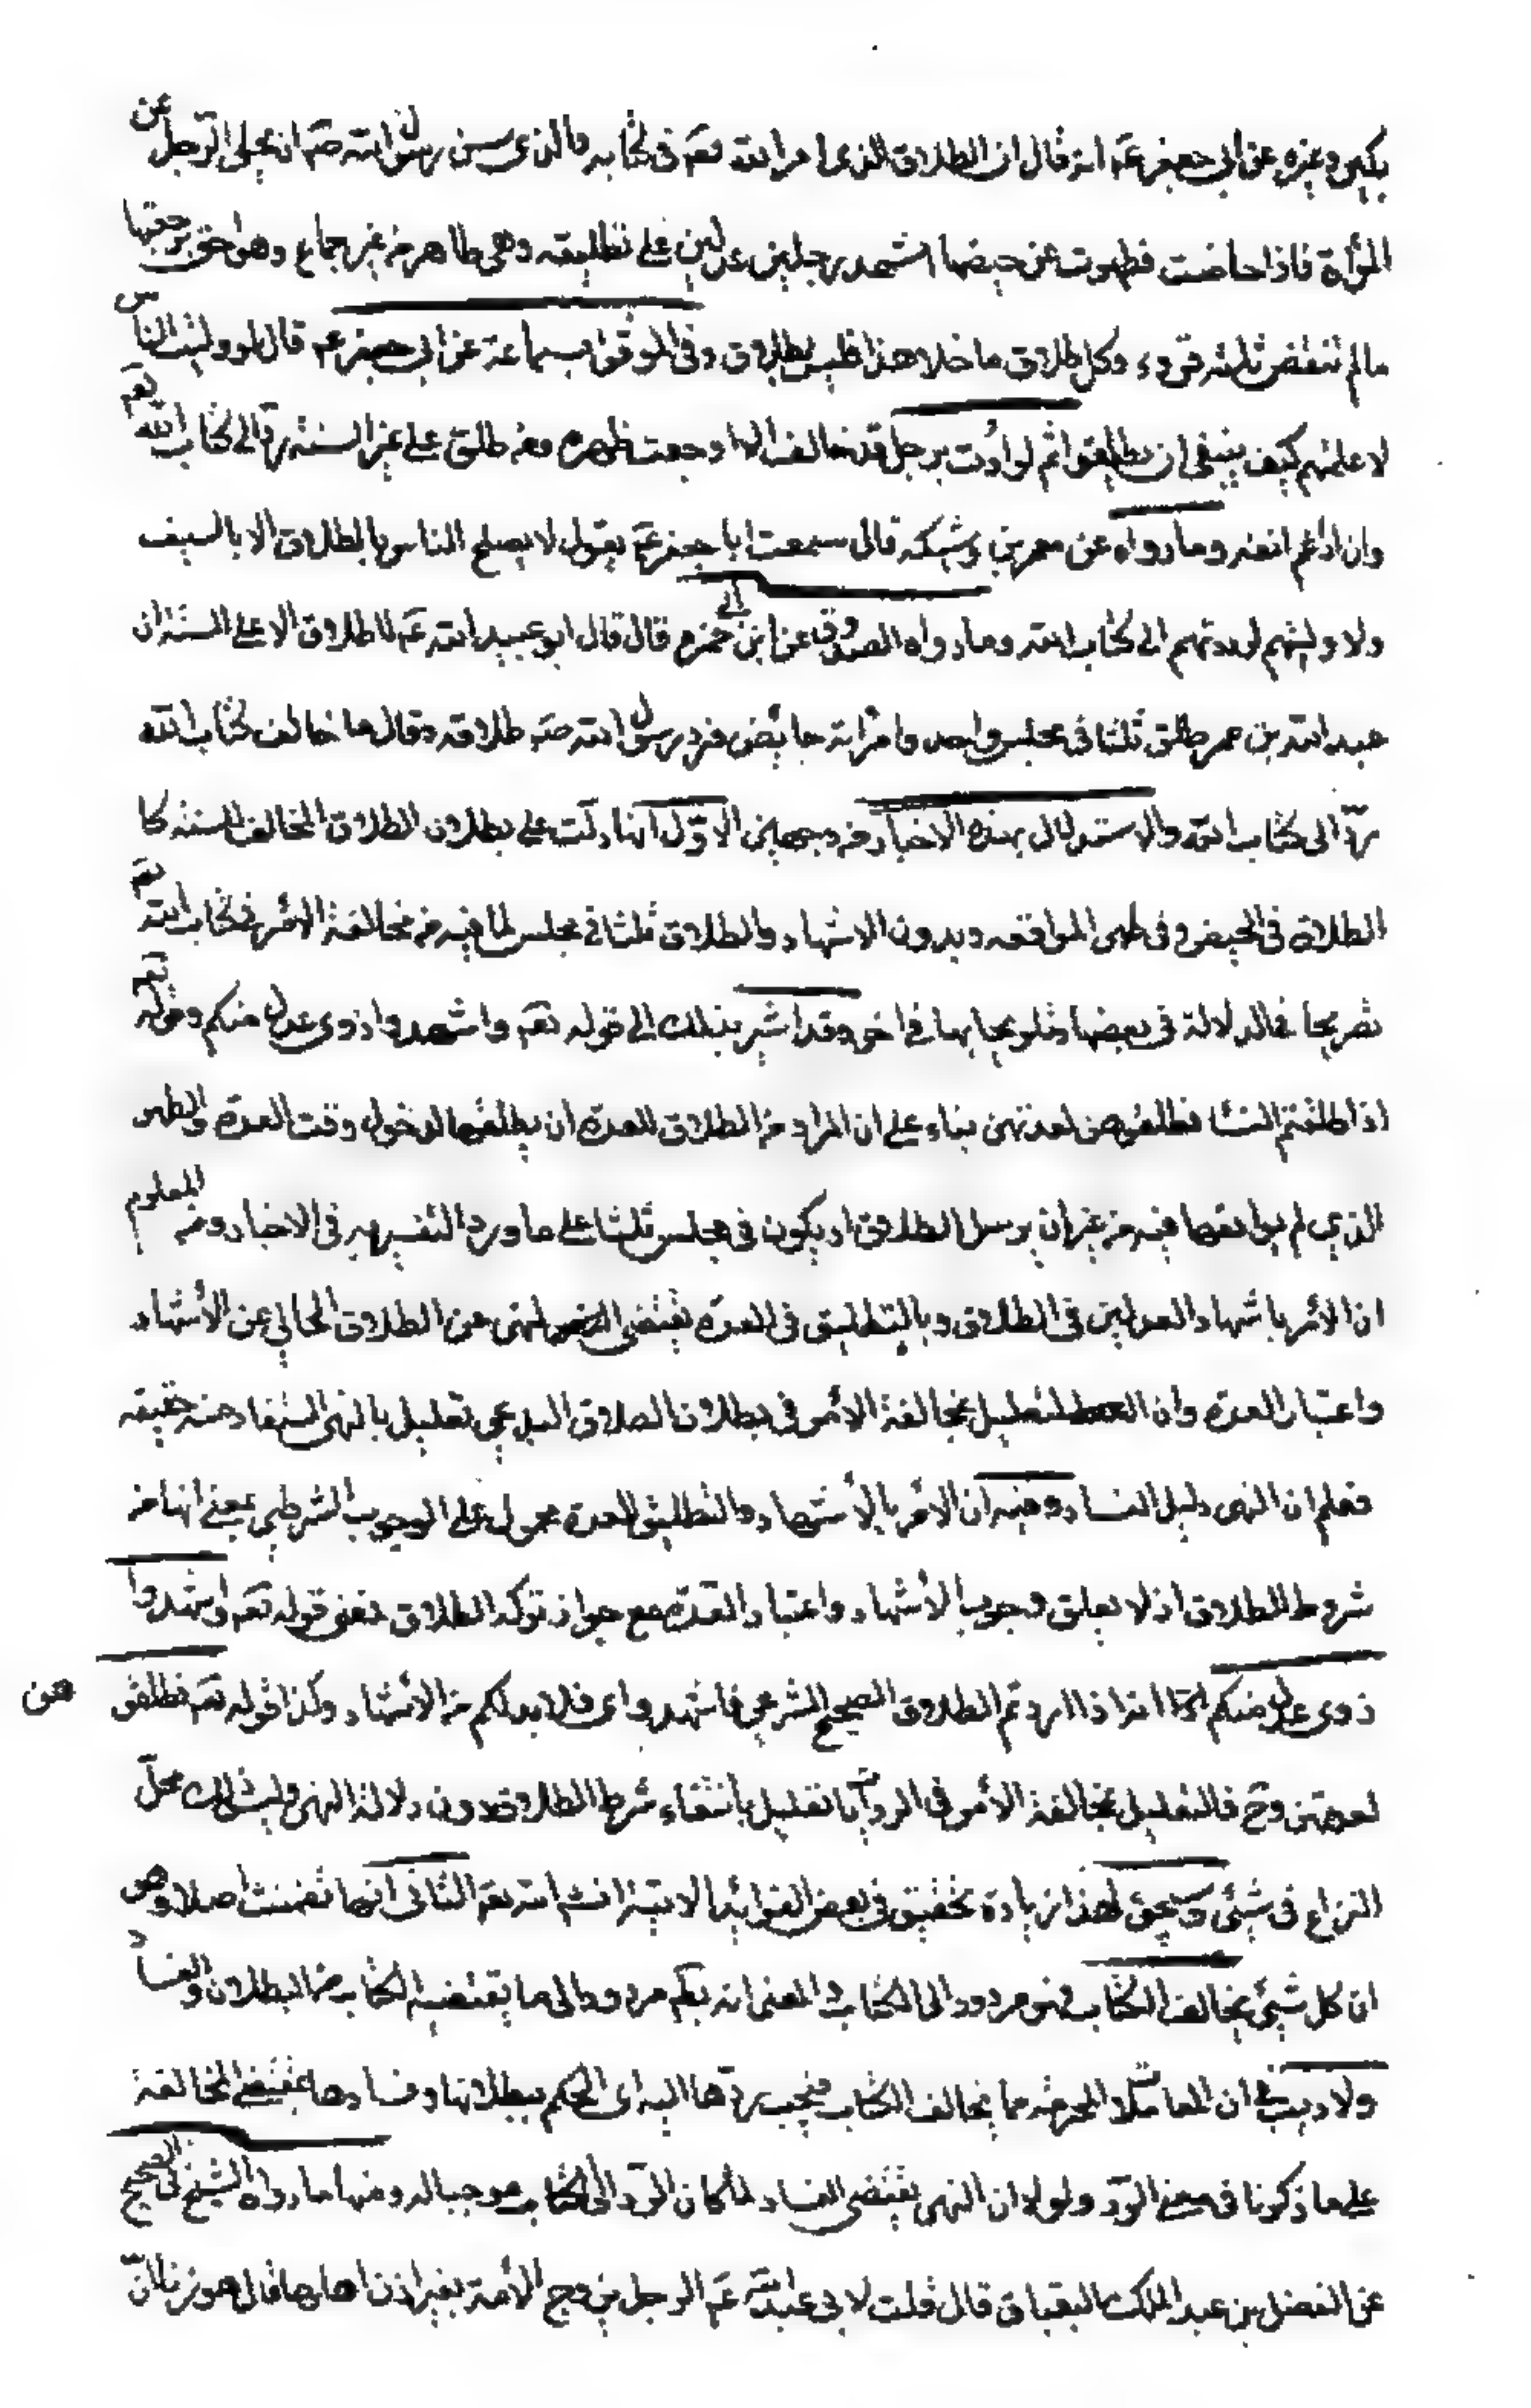 بكير وغيره عن ابي جعفر عم انه قال ان الطلاق الذي امر الله تعم في كتابه والذي سن رسول الله صم ان يخلي الرجل عن
المرأة فاذا حاضت فطهرت من حيضها اشهد رجلين عدلين على تطليقه وهي طاهر من غير جماع وهو احق برجعتها
ما لم تنقض ثلثة قروء وكل طلاق ما خلا هذا فليس بطلاق وفي الموثق بسماعة عن ابي جعفر عم قال لو وليت الناس
لاعلمتهم كيف ينبغي ان يطلقوا ثم لو اوت برجل قد خالف الا اوجعت ظهره ومن طلق على غير السنة رد الى كتاب الله تعم
وان رغم انفه وما رواه عن معمر بن وشيكه قال سمعت ابا جعفر عم يقول لا يصلح الناس بالطلاق الا بالسيف
ولو وليتهم لرددتهم الى كتاب الله وما رواه الصدوق عن ابن ابي حمزه قال قال ابو عبد الله عم لا طلاق الا على السنة ان
عبد الله بن عمر طلق ثلثا في مجلس واحد وامرأته حائض فرد رسول الله صم طلاقه وقال ما خالف كتاب الله
رد الى كتاب الله والاستدلال بهذه الاخبار من وجهين الاول انها دلت على بطلان الطلاق المخالف للسنة كا
الطلاق في الحيض وفي طهر المواقعه وبدون الاشهاد والطلاق ثلثا في مجلس لما فيه من مخالفة الامر في كتاب الله تعم
تصريحا في الدلالة في بعضها وتلويحا بها في اخر وقد اشير بذلك الى قوله تعم واشهدوا ذوي عدل منكم وقوله تعم
اذا طلقتم النسا فطلقوهن لعدتهن بناء على ان المراد من الطلاق للعدة ان يطلقها لدخول وقت العدة والطهر
الذي لم يواقعها فيه من غير ان يرسل الطلاق او يكون في مجلس ثلثا على ما ورد التفسير به في الاخبار ومن المعلوم
ان الامر باشهاد العدلين في الطلاق وبالتطليق في العدة يقتضي النهي عن الطلاق الخالي عن الاشهاد
واعتبار العدة وان التعليل بمخالفة الامر في بطلان الطلاق البدعي تعليل بالنهي المستفاد منه حقيقه
فعلم ان النهي دليل الفساد وفيه ان الامر بالاشهاد والتطليق للعدة محمول على الوجوب الشرطي بمعنى انها من
شروط الطلاق اذ لا يعلق وجوب الاشهاد واعتبار العدة مع جواز تركه الطلاق فمعنى قوله تعم واشهدوا
ذوي عدل منكم انه اذا اردتم الطلاق الصحيح الشرعي فاشهدوا اي فلا بد لكم من الاشهاد وكذا قوله تعم فطلقو هن
لعدتهن وح فالتعليل بمخالفة الامر في الروايات تعليل بانتفاء شرط الطلاق دون دلالة النهي وليس ذلك محل
النزاع في شيئ وسيجئ لهذا زيادة تحقيق في بعض الفوائد الاتية انشاء الله تعم الثاني انها تضمنت اصلا وهو
ان كل شيئ يخالف الكتاب فهو مردود الى الكتاب والمعنى انه بحكم مردود الى ما يقتضيه الكتاب من البطلان والفساد
ولا ريب في ان المعاملات المحرمة مما يخالف الكتاب فيجب ردها اليه اى الحكم ببطلانها وفسادها بمقتضى المخالفة
على ما ذكرنا في معنى الرد ولولا ان النهي يقتضي الفساد لما كان الرد الى الكتاب موجبا له ومنها ما رواه الشيخ في الصحيح
عن الفضل بن عبد الملك البقباق قال قلت لابي عبد الله عم الرجل يزوج الامة بغير اذن اهلها قال هو زنا ان